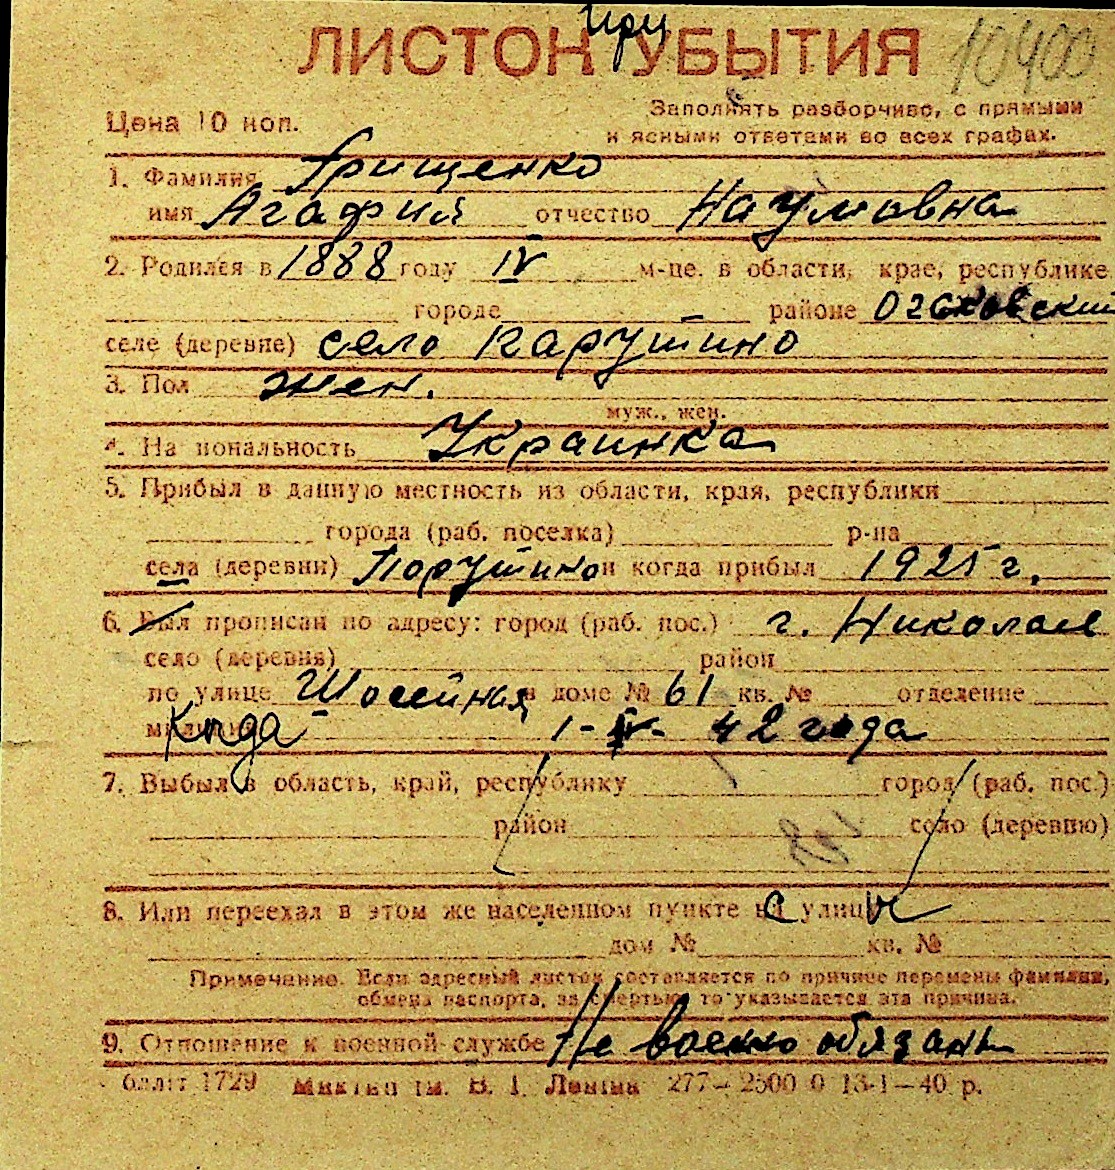 при
ЛИСТОК УБЫТИЯ 10400
Цена 10 коп.
Заполнять разборчиво, с прямыми
и ясными ответами во всех графах.
1. Фамилия Грищенко
имя Агафия отчество Наумовна
2. Родился в 1888 году IV м-це. в области, крае, республике
городе районе Очаковский
селе (деревне) село Парушино
3. Пол жен.
муж., жен.
4. На иональность Украинка
5. Прибыл в данную местность из области, края, республики
города (раб. поселка) р-на
села (деревни) Порушино и когда прибыл 1925 г.
6. Был прописан по адресу: город (раб. пос.) г. Николаев
село (деревня) район
по улице Шосейная в доме № 61 кв. № отделение
милиции Когда 1-IV-42 года
7. Выбыл в область, край, республику город (раб. пос.)
район село (деревню)
8. Или переехал в этом же населенном пункте на улицу
дом № кв. №
Примечание. Если адресный листок составляется по причине перемены фамилии,
обмена паспорта, за смертью, то указывается эта причина.
9. Отношение к военной службе Не военно обязан
1729 ім. В. І. Леніна 277—2500 0 13-1—40 р.